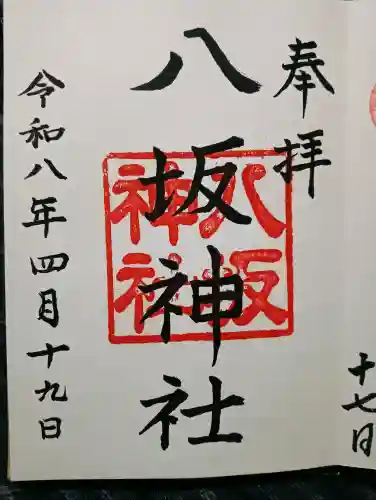 十七日
奉拝
八坂神社
八坂
神社
令和八年四月十九日